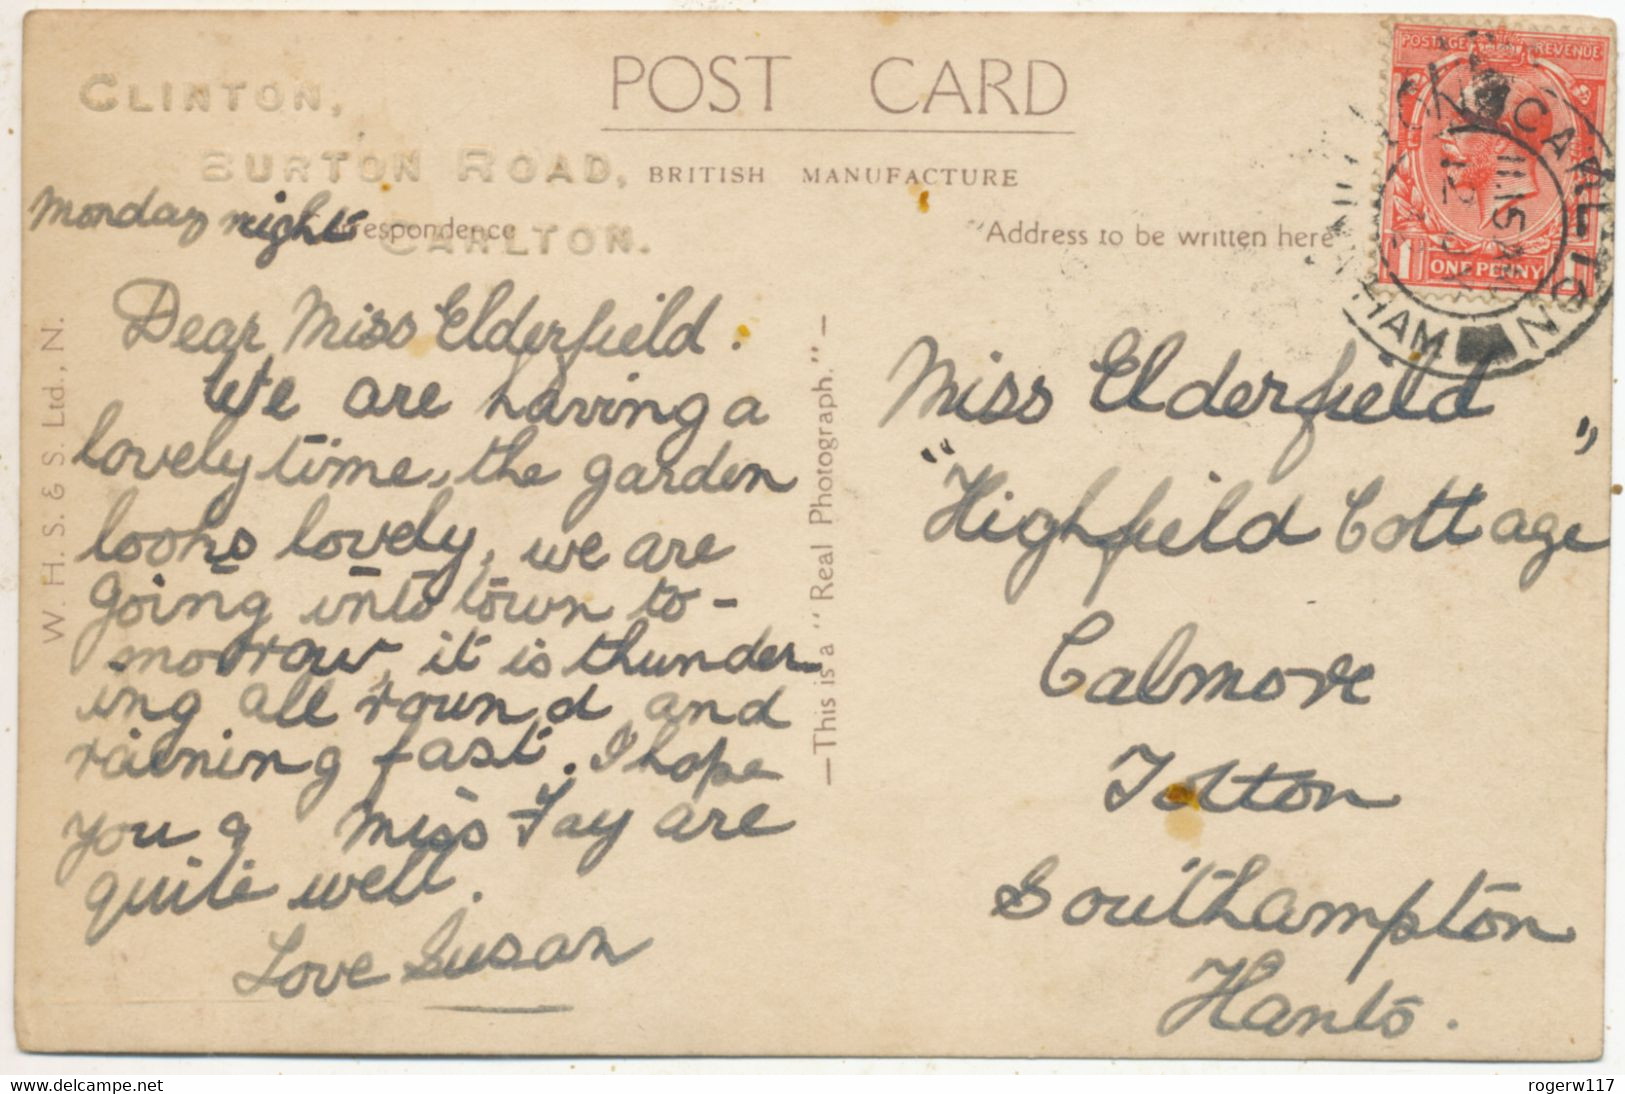 POST CARD
BRITISH MANUFACTURE
CLINTON,
BURTON ROAD,
CARLTON.
Monday night
respondence
Dear Miss Elderfield.
We are having a
lovely time, the garden
looks lovely, we are
going into town to-
morrow, it is thunder-
ing all round and
raining fast. I hope
you & Miss Fay are
quite well.
Love Susan
W. H. S. & S. Ltd., N.
—This is a "Real Photograph."—
Address to be written here
POSTAGE REVENUE
1 ONE PENNY 1
CARLTON
11.15 AM
HAM
Miss Elderfield
"Highfield Cottage"
Calmore
Totton
Southampton
Hants.
rogerw117